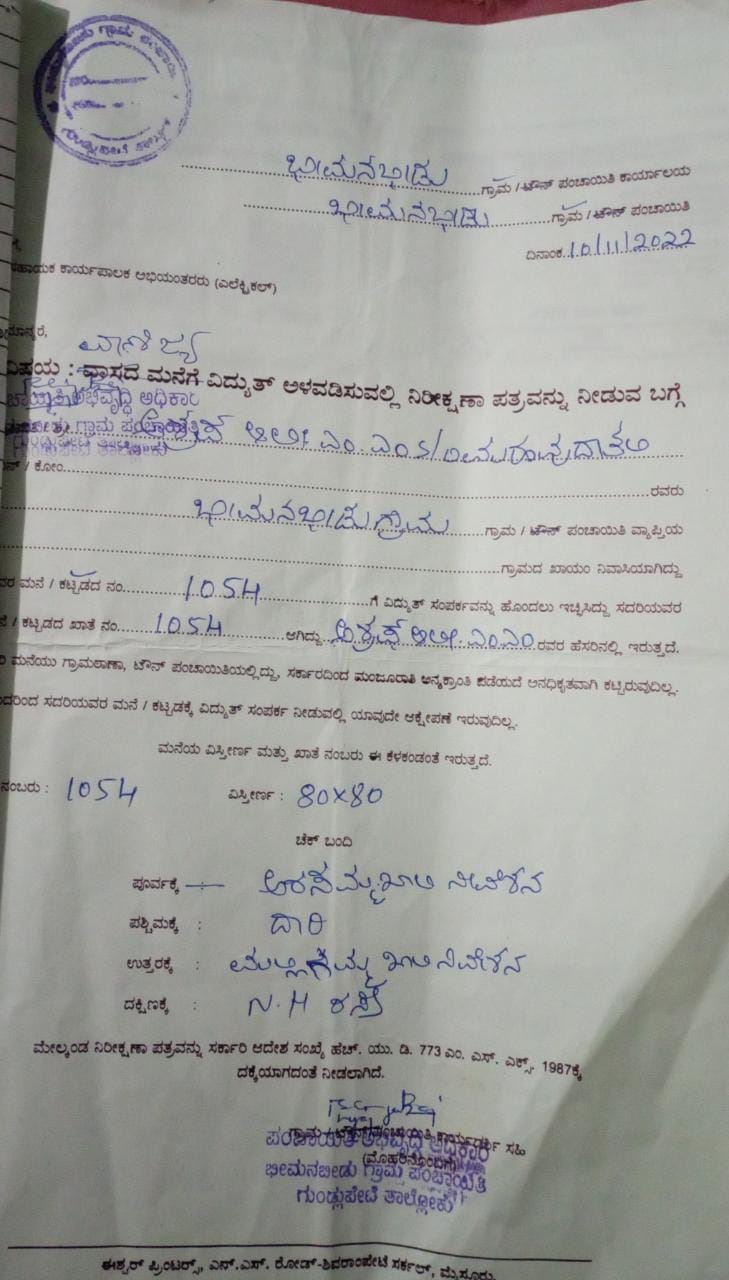 ಭೀಮನಬೀಡು ಗ್ರಾಮ / ಟೌನ್ ಪಂಚಾಯಿತಿ ಕಾರ್ಯಾಲಯ
ಭೀಮನಬೀಡು ಗ್ರಾಮ / ಟೌನ್ ಪಂಚಾಯಿತಿ
ದಿನಾಂಕ 10/11/2022
ಸಹಾಯಕ ಕಾರ್ಯಪಾಲಕ ಅಭಿಯಂತರರು (ಎಲೆಕ್ಟ್ರಿಕಲ್)
ವಾಣಿಜ್ಯ
ವಿಷಯ : ವಾಸದ ಮನೆಗೆ ವಿದ್ಯುತ್ ಅಳವಡಿಸುವಲ್ಲಿ ನಿರೀಕ್ಷಣಾ ಪತ್ರವನ್ನು ನೀಡುವ ಬಗ್ಗೆ
ಅಭಿವೃದ್ಧಿ ಅಧಿಕಾರಿ
ಗ್ರಾಮ ಪಂಚಾಯಿತಿ
ಗುಂಡ್ಲುಪೇಟೆ ತಾಲ್ಲೋಕು
ಅಶ್ರಫ್ ಆಲೀ ಎಂ.ಎಂ S/o
/ ಕೋಂ ರವರು
ಭೀಮನಬೀಡು ಗ್ರಾಮ ಗ್ರಾಮ / ಟೌನ್ ಪಂಚಾಯಿತಿ ವ್ಯಾಪ್ತಿಯ
ಗ್ರಾಮದ ಖಾಯಂ ನಿವಾಸಿಯಾಗಿದ್ದು
ಮನೆ / ಕಟ್ಟಡದ ನಂ 1054 ಗೆ ವಿದ್ಯುತ್ ಸಂಪರ್ಕವನ್ನು ಹೊಂದಲು ಇಚ್ಛಿಸಿದ್ದು ಸದರಿಯವರ
/ ಕಟ್ಟಡದ ಖಾತೆ ನಂ 1054 ಆಗಿದ್ದು ಅಶ್ರಫ್ ಆಲೀ.ಎಂ.ಎಂ ರವರ ಹೆಸರಿನಲ್ಲಿ ಇರುತ್ತದೆ.
ಮನೆಯು ಗ್ರಾಮಠಾಣಾ, ಟೌನ್ ಪಂಚಾಯಿತಿಯಲ್ಲಿದ್ದು, ಸರ್ಕಾರದಿಂದ ಮಂಜೂರಾತಿ ಅನ್ಯಕ್ರಾಂತಿ ಪಡೆಯದೆ ಅನಧಿಕೃತವಾಗಿ ಕಟ್ಟಿರುವುದಿಲ್ಲ.
ಸದರಿಯವರ ಮನೆ / ಕಟ್ಟಡಕ್ಕೆ ವಿದ್ಯುತ್ ಸಂಪರ್ಕ ನೀಡುವಲ್ಲಿ ಯಾವುದೇ ಆಕ್ಷೇಪಣೆ ಇರುವುದಿಲ್ಲ.
ಮನೆಯ ವಿಸ್ತೀರ್ಣ ಮತ್ತು ಖಾತೆ ನಂಬರು ಈ ಕೆಳಕಂಡಂತೆ ಇರುತ್ತದೆ.
ನಂಬರು : 1054 ವಿಸ್ತೀರ್ಣ : 80x80
ಚೆಕ್ ಬಂದಿ
ಪೂರ್ವಕ್ಕೆ ಖಾಲಿ ನಿವೇಶನ
ಪಶ್ಚಿಮಕ್ಕೆ : ದಾರಿ
ಉತ್ತರಕ್ಕೆ : ಖಾಲಿ ನಿವೇಶನ
ದಕ್ಷಿಣಕ್ಕೆ : N.H ರಸ್ತೆ
ಮೇಲ್ಕಂಡ ನಿರೀಕ್ಷಣಾ ಪತ್ರವನ್ನು ಸರ್ಕಾರಿ ಆದೇಶ ಸಂಖ್ಯೆ ಹೆಚ್. ಯು. ಡಿ. 773 ಎಂ. ಎಸ್. ಎಕ್ಸ್. 1987ಕ್ಕೆ
ದಕ್ಕೆಯಾಗದಂತೆ ನೀಡಲಾಗಿದೆ.
ಗ್ರಾಮ / ಟೌನ್ ಪಂಚಾಯಿತಿ ಕಾರ್ಯದರ್ಶಿ ಸಹಿ
(ಮೊಹರಿನೊಂದಿಗೆ)
ಪಂಚಾಯಿತಿ ಅಭಿವೃದ್ಧಿ ಅಧಿಕಾರಿ
ಭೀಮನಬೀಡು ಗ್ರಾಮ ಪಂಚಾಯಿತಿ
ಗುಂಡ್ಲುಪೇಟೆ ತಾಲ್ಲೋಕು
ಈಶ್ವರ್ ಪ್ರಿಂಟರ್ಸ್, ಎನ್.ಎಸ್. ರೋಡ್-ಶಿವರಾಂಪೇಟೆ ಸರ್ಕಲ್, ಮೈಸೂರು.